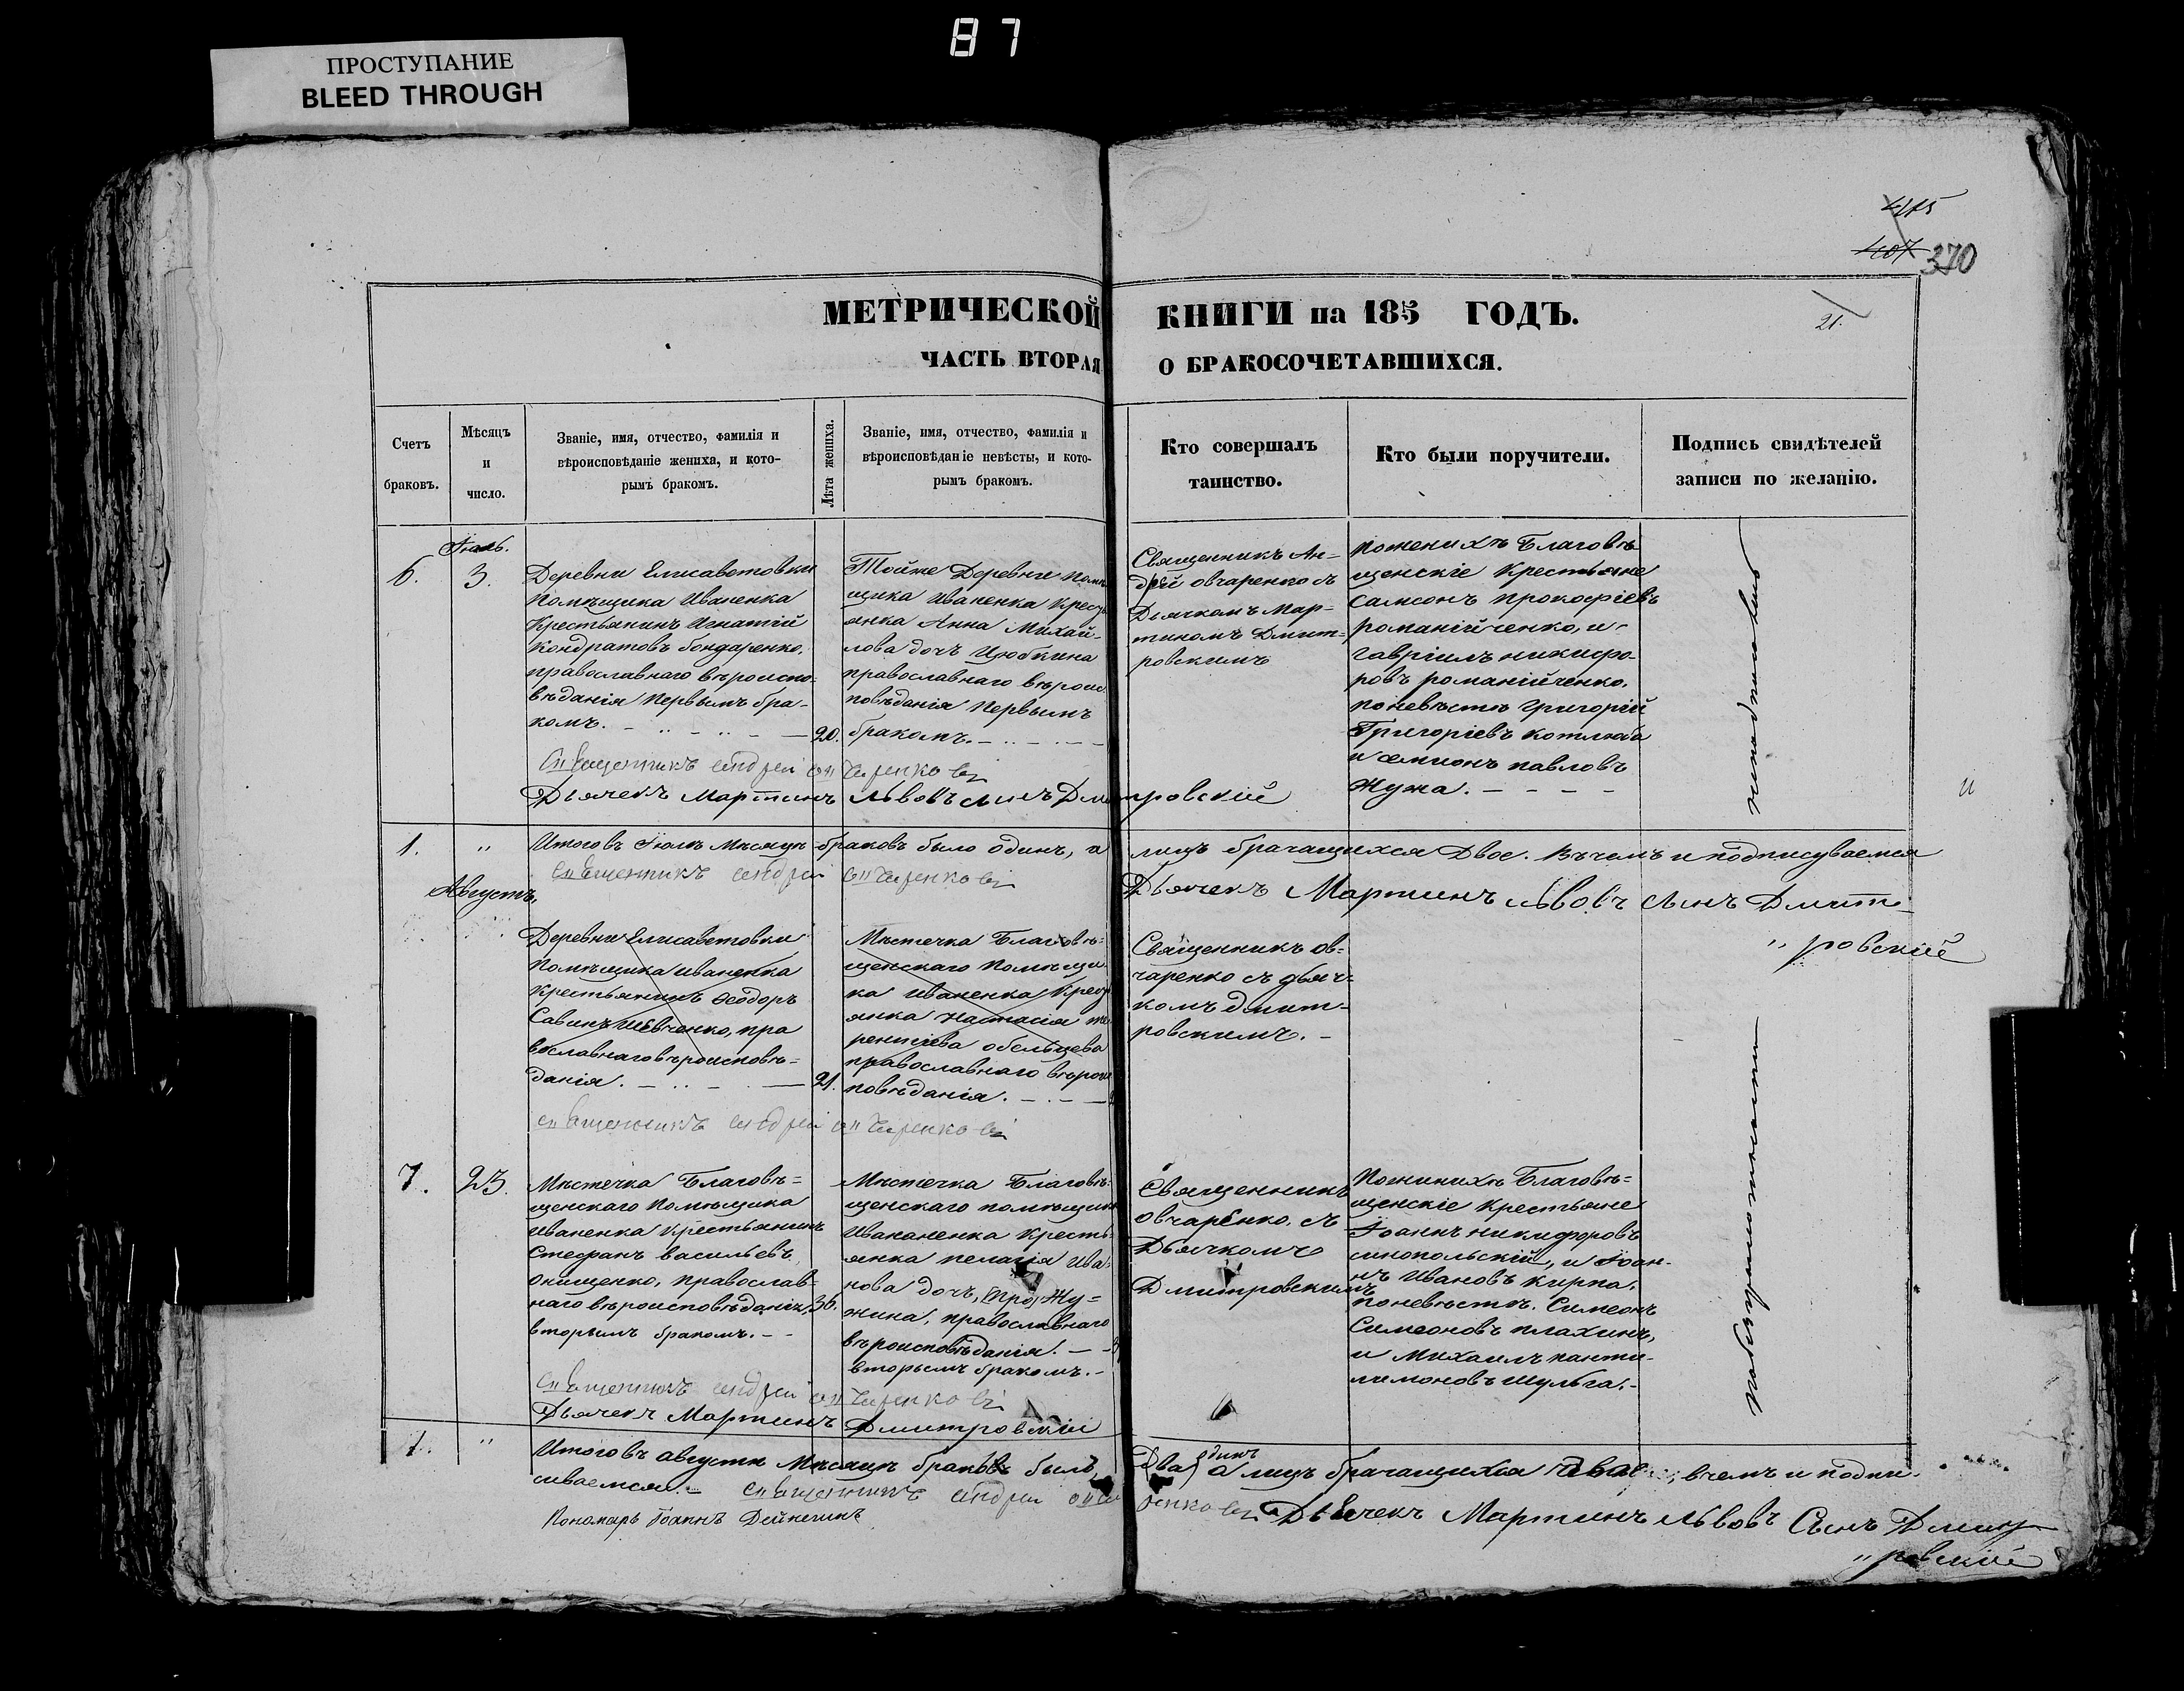 87
ПРОСТУПАНИЕ
BLEED THROUGH
415
407 370
МЕТРИЧЕСКОЙ КНИГИ на 185 ГОДЪ.
21.
ЧАСТЬ ВТОРАЯ О БРАКОСОЧЕТАВШИХСЯ.
Счетъ
браковъ.
Мѣсяцъ
и
число.
Званіе, имя, отчество, фамилія и
вѣроисповѣданіе жениха, и кото-
рымъ бракомъ.
Лѣта жениха.
Званіе, имя, отчество, фамилія и
вѣроисповѣданіе невѣсты, и кото-
рымъ бракомъ.
Кто совершалъ
таинство.
Кто были поручители.
Подпись свидѣтелей
записи по желанію.
Іюль.
6.
3.
Деревни Елисаветовки
Помѣщика Иваненка
Крестьянинъ Игнатій
Кондратовъ бондаренко,
православнаго вѣроиспо-
вѣданія Первымъ бра-
комъ.
20.
Тойже Деревни Помѣ
щика Иваненка Кресть
янка Анна Михай-
лова дочъ Цюбкина
православнаго вѣроис
повѣданія Первымъ
бракомъ.
Священникъ Ан-
дрей овчаренко съ
Дьячкомъ Мар-
тиномъ Дмит-
ровскимъ
Поженихѣ Благовѣ
щенскіе Крестьяне
Самсонъ Прокофіевъ
романійченко, и
гавріилъ никифо-
ровъ романійченко.
поневѣстѣ Григорій
Григоріевъ котлюба
и семионъ павловъ
Нужа.
Священникъ андрей овчаренковъ
Дьячекъ Мартинъ Львовъ сынъ Дмитровскій
и
1. "
Итого въ Іюлѣ Мѣсяцѣ браковъ было одинъ, а лицъ брачащихся Двое. Въ чемъ и подписуваемся
Священникъ андрей овчаренковъ
Дьячекъ Мартинъ Львовъ сынъ Дмит-
" ровскій
Августъ,
Деревни Елисаветовки
Помѣщика иваненка
Крестьянинъ Ѳеодоръ
Савинъ Шевченко, пра
вославнаго вѣроисповѣ=
данія.
21.
Мѣстечка Благовѣ=
щенскаго Помѣщи
ка Иваненка Крест
янка Настасія те
рентіева обельцева
православнаго вѣрои
повѣданія.
Священникъ ов=
чаренко съ дьяч-
комъ дмит-
ровскимъ.
Священникъ андрей овчаренковъ
7.
23.
Мѣстечка Благовѣ=
щенскаго Помѣщика
Иваненка Крестьянинъ
Стефанъ васильевъ
онищенко, православ-
наго вѣроисповѣданія,
вторымъ бракомъ.
36.
Мѣстечка Благовѣ=
щенскаго помѣщика
Ивананенка Кресть
янка пелагія Ива
нова дочъ, (про) Ну=
жина, православнаго
вѣроисповѣданія.
вторымъ бракомъ.
Священникъ
овчаренко, съ
Дьячкомъ
Дмитровскимъ
Поженихѣ Благовѣ=
щенскіе Крестьяне
Іоаннъ никифоровъ
синопольскій, и Іоан-
нъ Ивановъ кирпа.
поневѣстѣ. Симеонъ
Симеоновъ плахинъ,
и Михаилъ панти-
лимоновъ шульга.
Священникъ андрей овчаренковъ
Дьячекъ Мартинъ Дмитровскій
1. "
Итого въ августѣ Мѣсяцѣ браковъ было (Два) одинъ а лицъ брачащихся двое, въ чемъ и подпи-
сиваемся. Священникъ андрей овчаренковъ Дьячекъ Мартинъ Львовъ Сынъ Дмит
" ровскій
Пономарь Іоаннъ Дейнегинъ